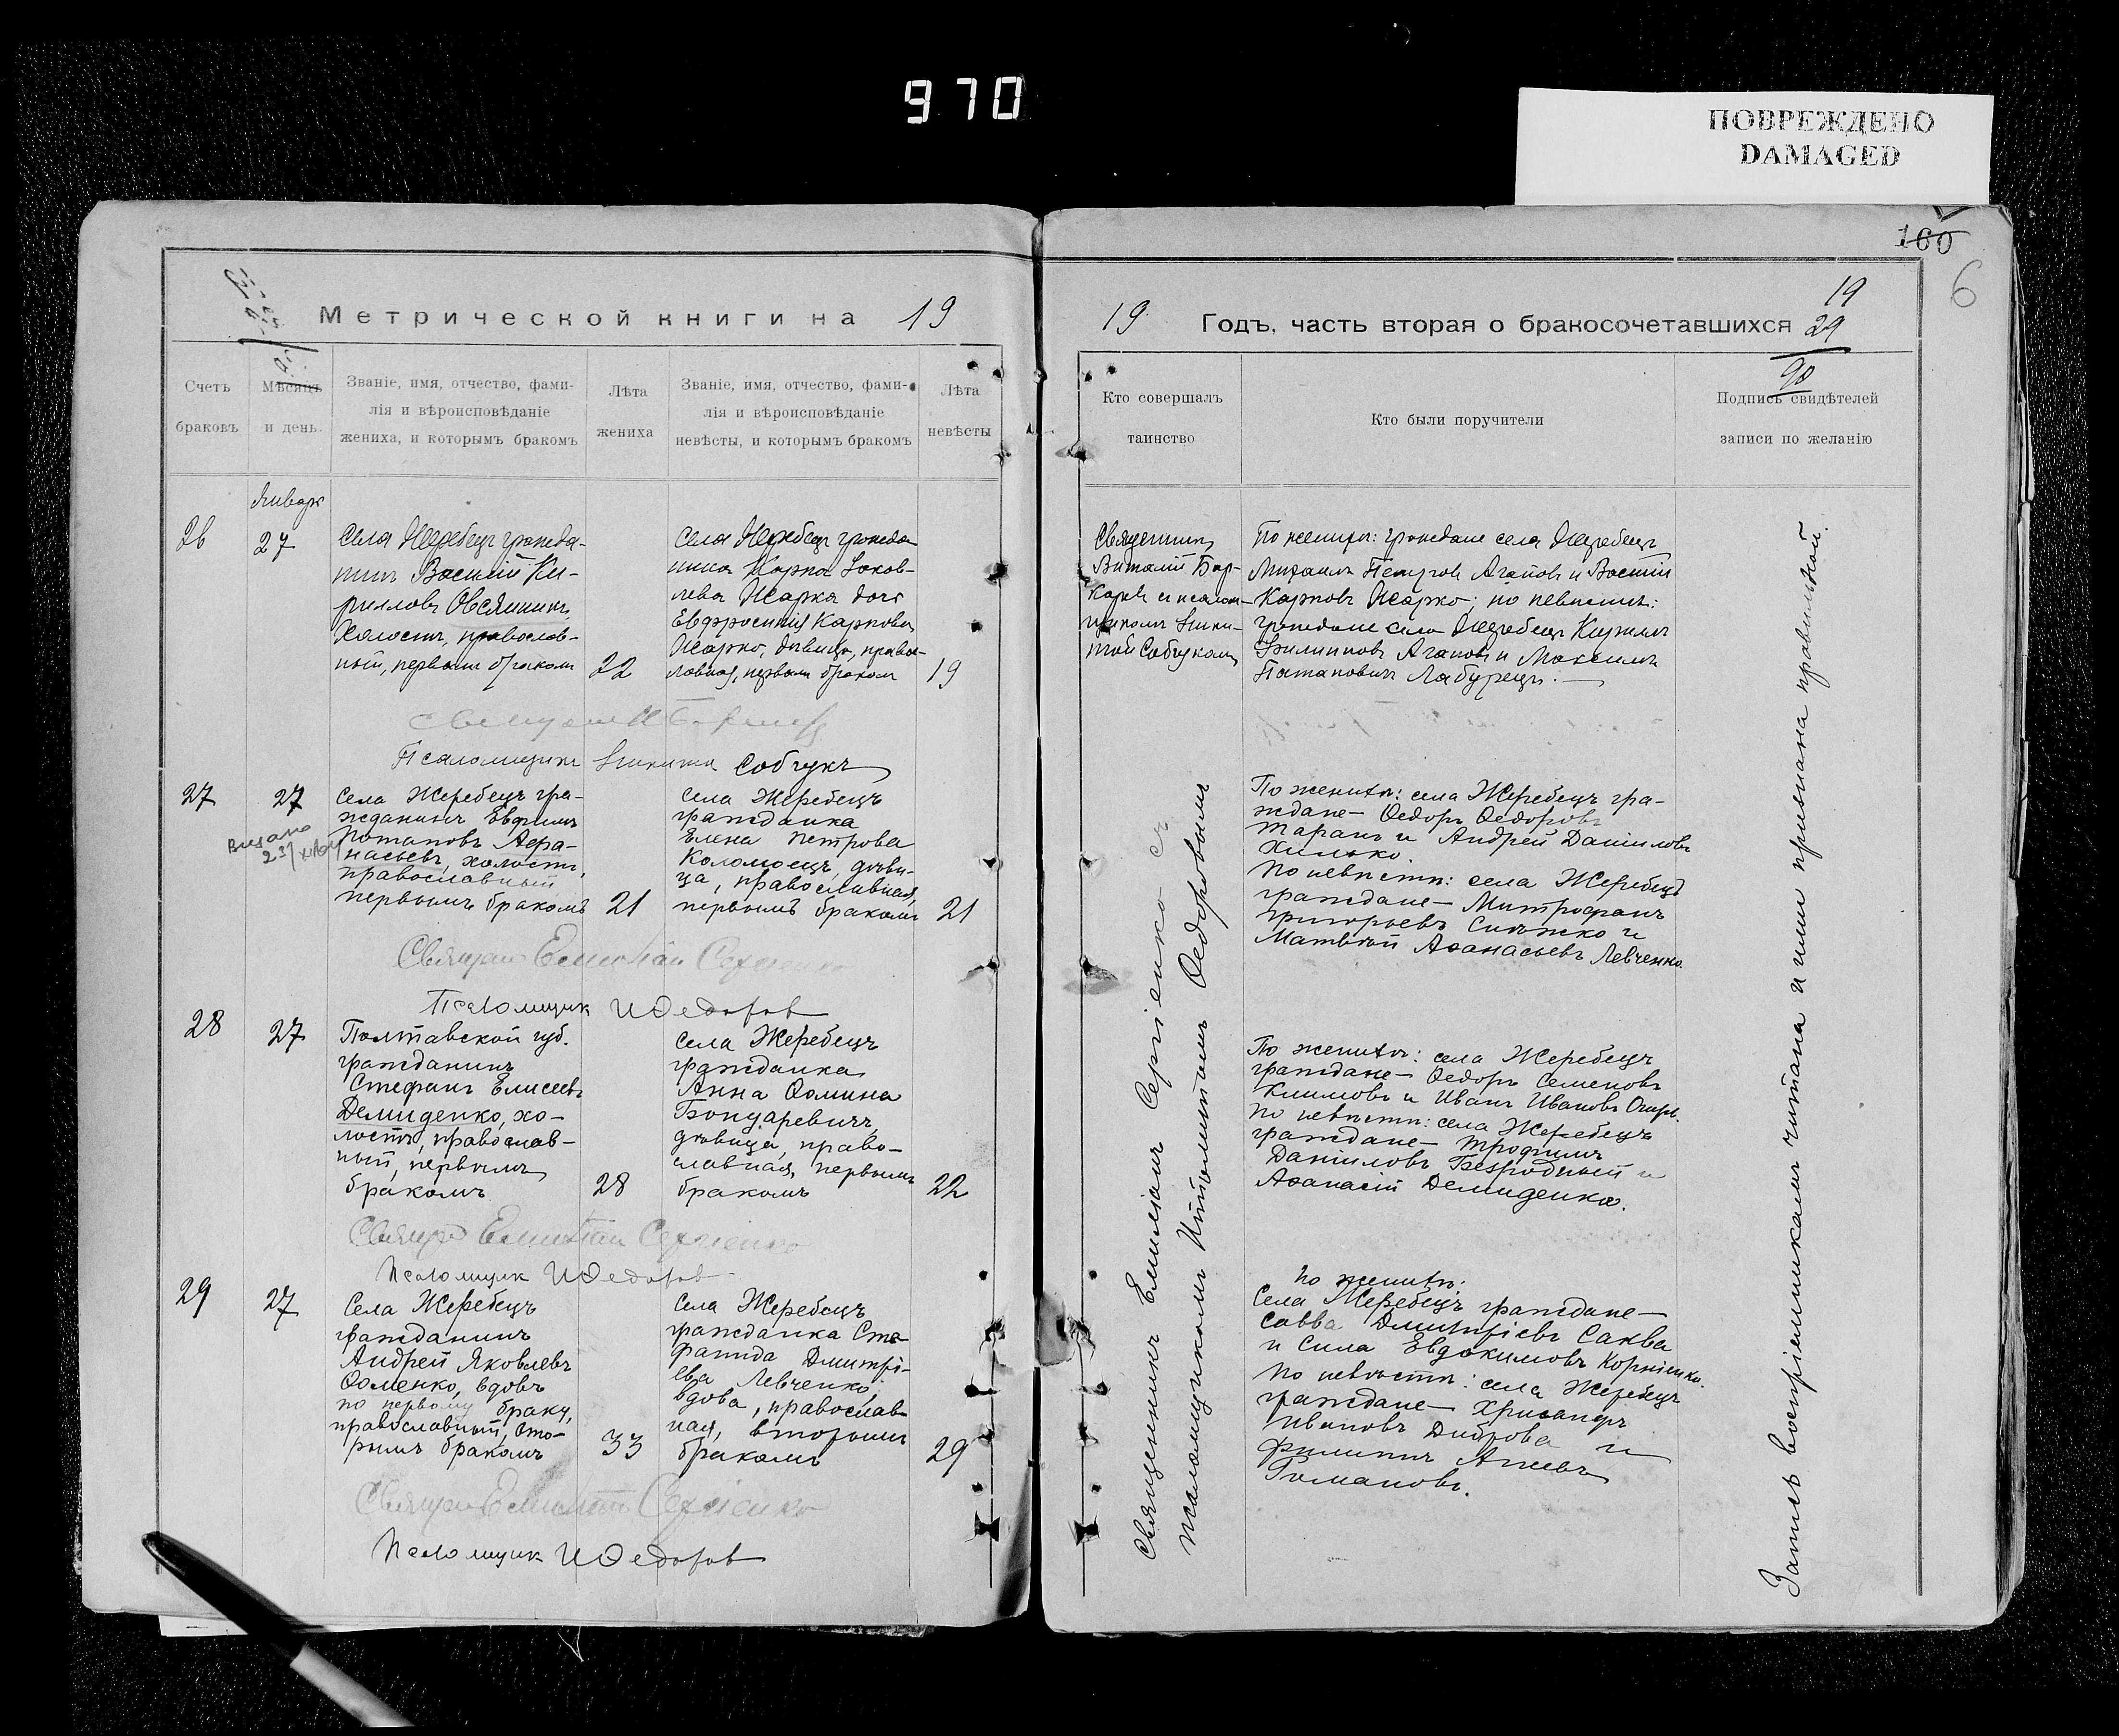 970
ПОВРЕЖДЕНО
DAMAGED
160
6
Метрической книги на 19
19 Годъ, часть вторая о бракосочетавшихся
19
29
90
Счетъ
браковъ
Мѣсяцъ
и день.
Званіе, имя, отчество, фами-
лія и вѣроисповѣданіе
жениха, и которымъ бракомъ
Лѣта
жениха
Званіе, имя, отчество, фами-
лія и вѣроисповѣданіе
невѣсты, и которымъ бракомъ
Лѣта
невѣсты
Кто совершалъ
таинство
Кто были поручители
Подпись свидѣтелей
записи по желанію
Январь
26
27
Села Жеребецъ гражда-
нинъ Василій Ки-
рилловъ Овсянникъ,
холостъ, православ-
ный, первымъ бракомъ
22
Села Жеребецъ гражда-
нина Карпа Іаков-
лева Жарка дочь
Евфросинія Карпова
Жарко, дѣвица, право-
лавная, первымъ бракомъ
19
Священникъ
Виталій
и псалом-
щикомъ Ники-
той Собчукомъ
По женихѣ: граждане села Жеребецъ
Михаилъ Петровъ Агаповъ и Василій
Карповъ Жарко; по невѣстѣ:
граждане села Жеребецъ Кириллъ
Филипповъ Агаповъ и Максимъ
Потаповичъ Лабурецъ.
Псаломщикъ Никита Собчукъ
27
27
Видано
Села Жеребецъ гра-
жданинъ Евфимъ
Потаповъ Афа-
насьевъ, холостъ,
православный
первымъ бракомъ
21
Села Жеребецъ
гражданка
Елена Петрова
Коломоецъ, дѣви-
ца, православная,
первымъ бракомъ
21
По женихѣ: села Жеребецъ гра-
ждане— Ѳедоръ Ѳедоровъ
Таранъ и Андрей Даніиловъ
Хилько.
По невѣстѣ: села Жеребецъ
граждане— Митрофанъ
Григорьевъ Синѣжко и
Матвѣй Аѳанасьевъ Левченко.
Священ Емиліан Сергіенко
Псаломщик И Ѳедоров
28
27
Полтавской губ.
гражданинъ
Стефанъ Елисеевъ
Демиденко, хо-
лостъ, православ-
ный, первымъ
бракомъ
28
Села Жеребецъ
гражданка
Анна Ѳомина
Бондаревичъ,
дѣвица, право-
славная, первымъ
бракомъ
22
По женихѣ: села Жеребецъ
граждане— Ѳедоръ Семеновъ
Климовъ и Иванъ Ивановъ
По невѣстѣ: села Жеребецъ
граждане— Трофимъ
Даніиловъ Безродный и
Аѳанасій Демиденко.
Священ Емиліан Сергіенко
Псаломщик И Ѳедоров
29
27
Села Жеребецъ
гражданинъ
Андрей Яковлевъ
Ѳоменко, вдовъ
по первому браку,
православный, вто-
рымъ бракомъ
33
Села Жеребецъ
гражданка Стра-
фатида Дмитрі-
ева Левченко,
вдова, православ-
ная, вторымъ
бракомъ
29
По женихѣ:
Села Жеребецъ граждане—
Савва Дмитріевъ Саква
и Сила Евдокимовъ Корніенко.
По невѣстѣ: села Жеребецъ
граждане— Хрисанфъ
Ивановъ Диброва и
Филиппъ
Романовъ.
Священ Емиліан Сергіенко
Псаломщик И Ѳедоров
Священникъ Емиліанъ Сергіенко съ
псаломщикомъ Ипполитомъ Ѳедоровымъ
Запись воспріемниками читана и ими признана правильной.